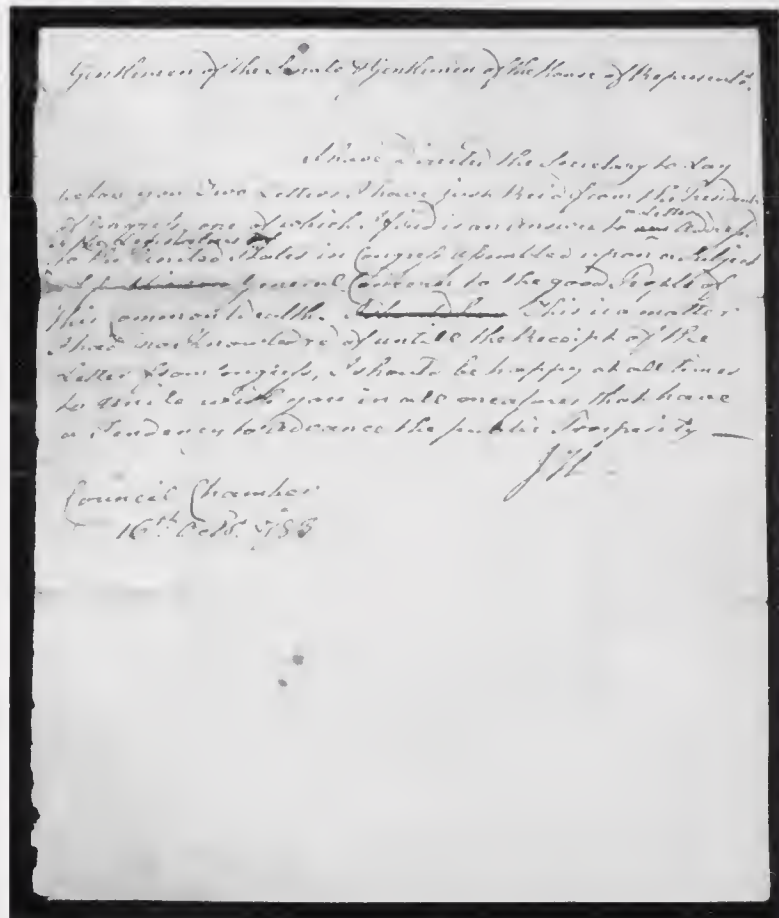 Gentlemen of the Senate & Gentlemen of the House of Represents.
I have directed the Secretary to Lay
before you Two Letters I have just Rec'd from the President
of Congress, one of which I find is an answer to Letter Address
to the United States in Congress assembled upon a Subject
of General Concern to the good People of
this Commonwealth. This is a matter
I had no Knowledge of untill the Receipt of the
Letter from Congress, I should be happy at all times
to unite with you in all measures that have
a Tendency to advance the public Prosperity —
JH
Council Chamber
16th Octr. 1783